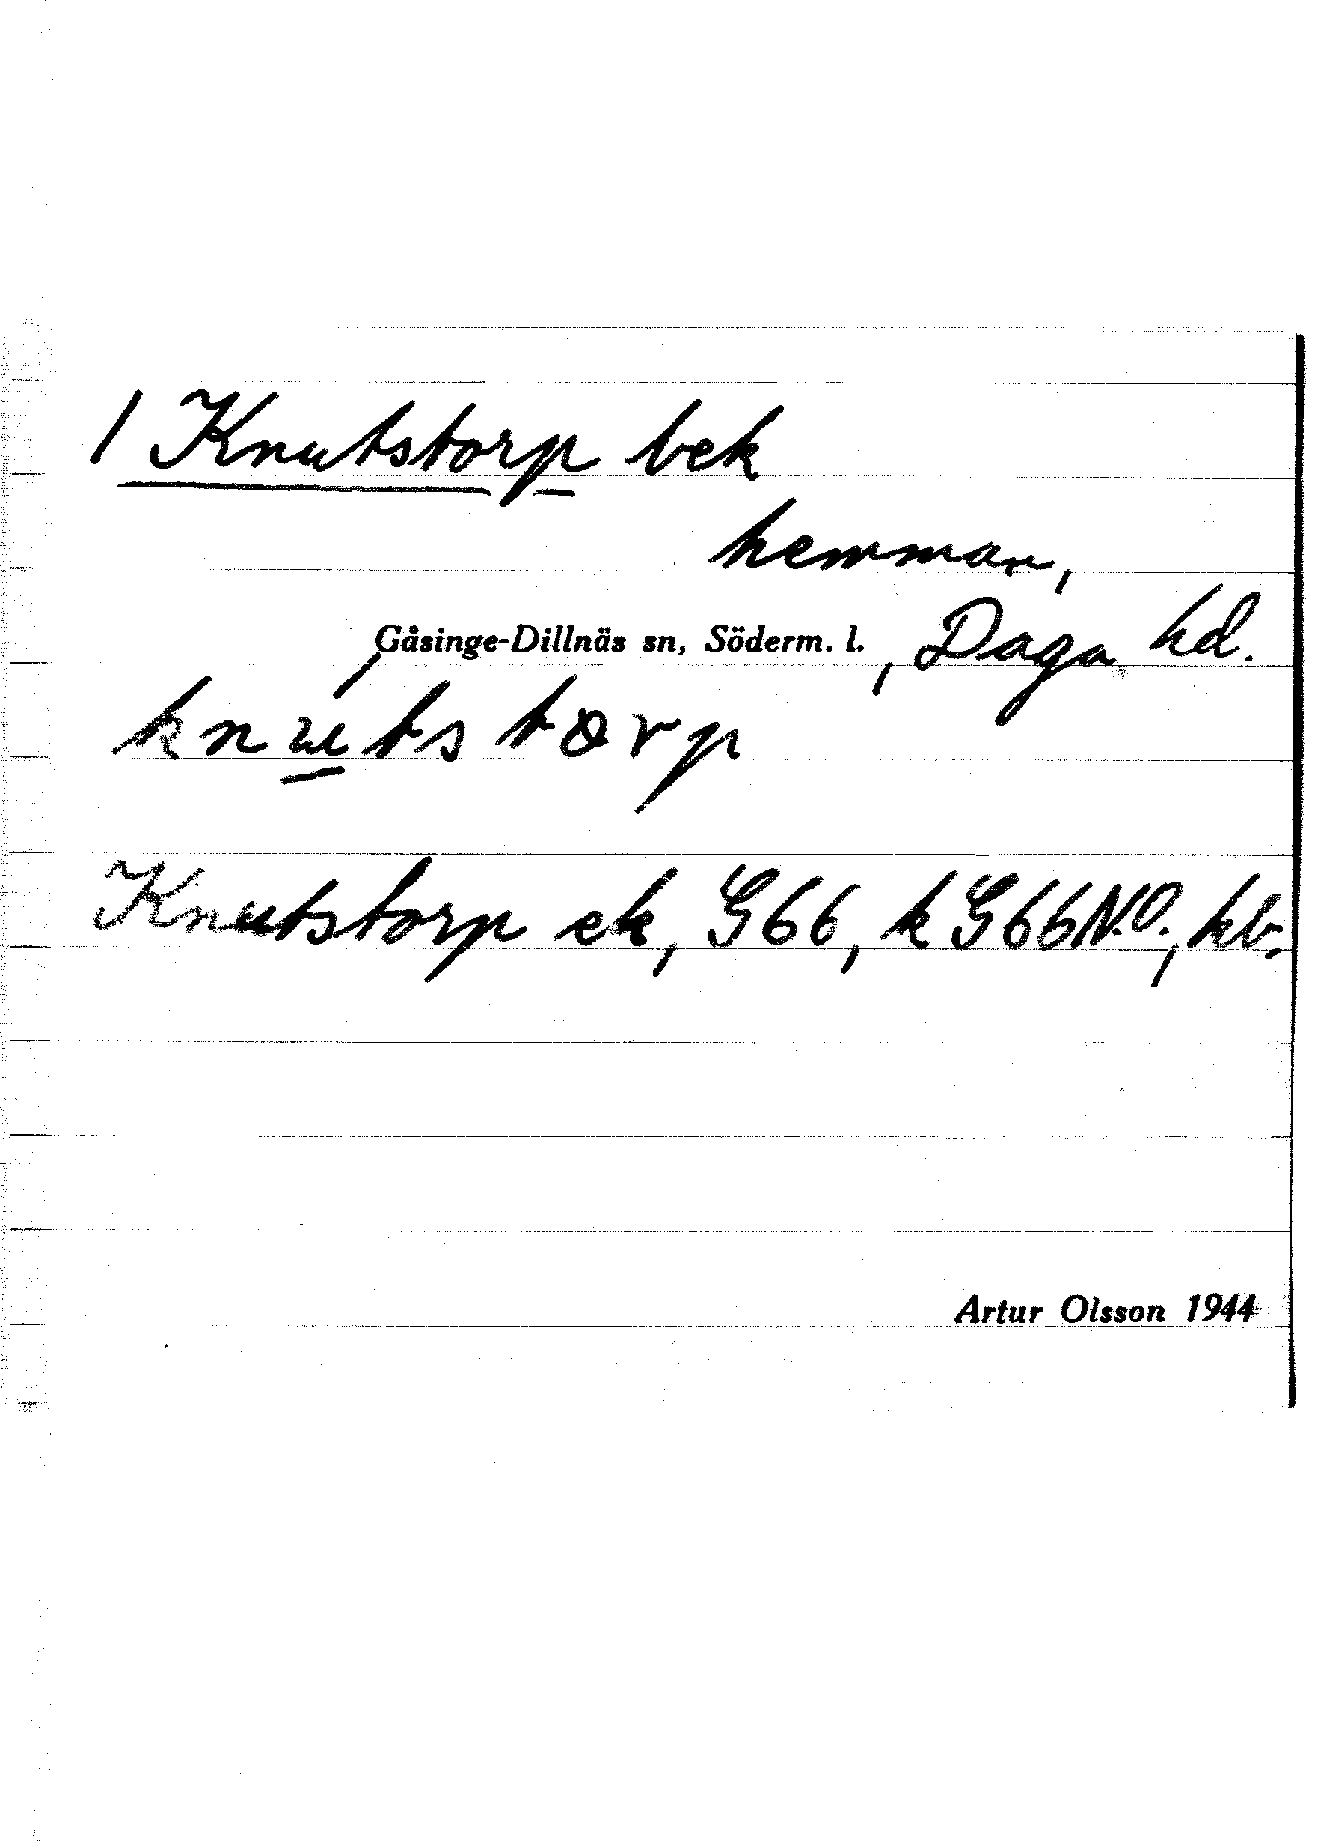 1 Knutstorp bek
hemman,
Gåsinge-Dillnäs sn, Söderm. l., Daga hd.
knutstorp
Knutstorp ek, G66, k G66 N.O., kb.
Artur Olsson 1944